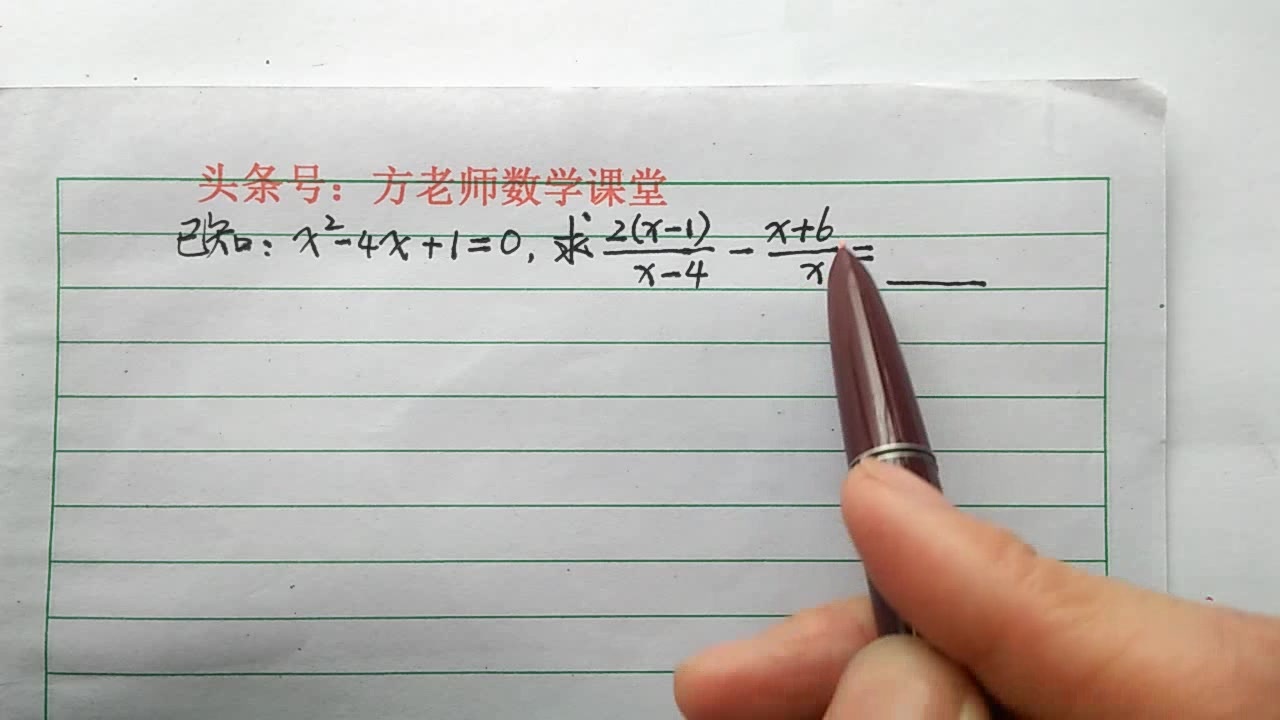 头条号：方老师数学课堂
已知：x²-4x+1=0, 求 2(x-1)/(x-4) - (x+6)/x = ____